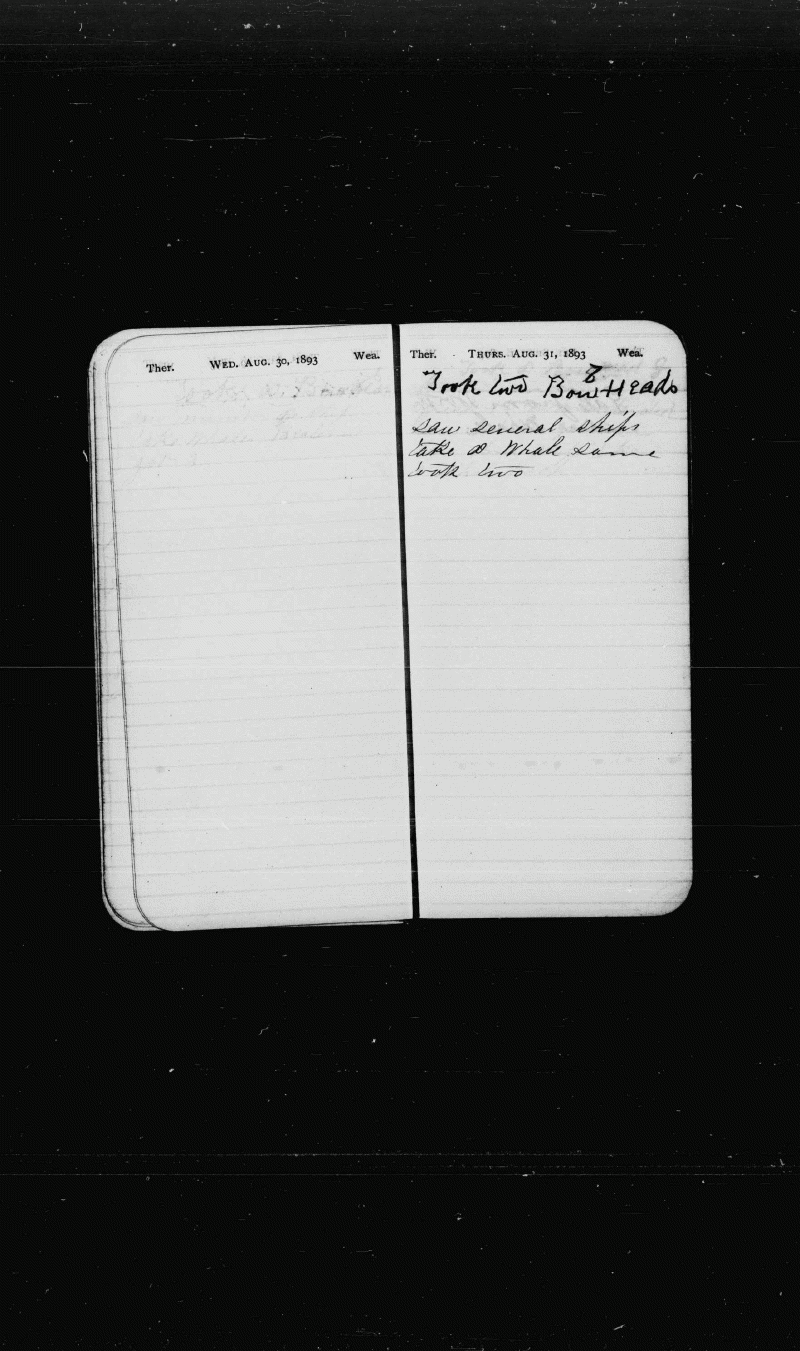 Ther. WED. AUG. 30, 1893 Wea.
Ther. THURS. AUG. 31, 1893 Wea.
Took two Bow Heads
saw several ships
take a Whale some
took two